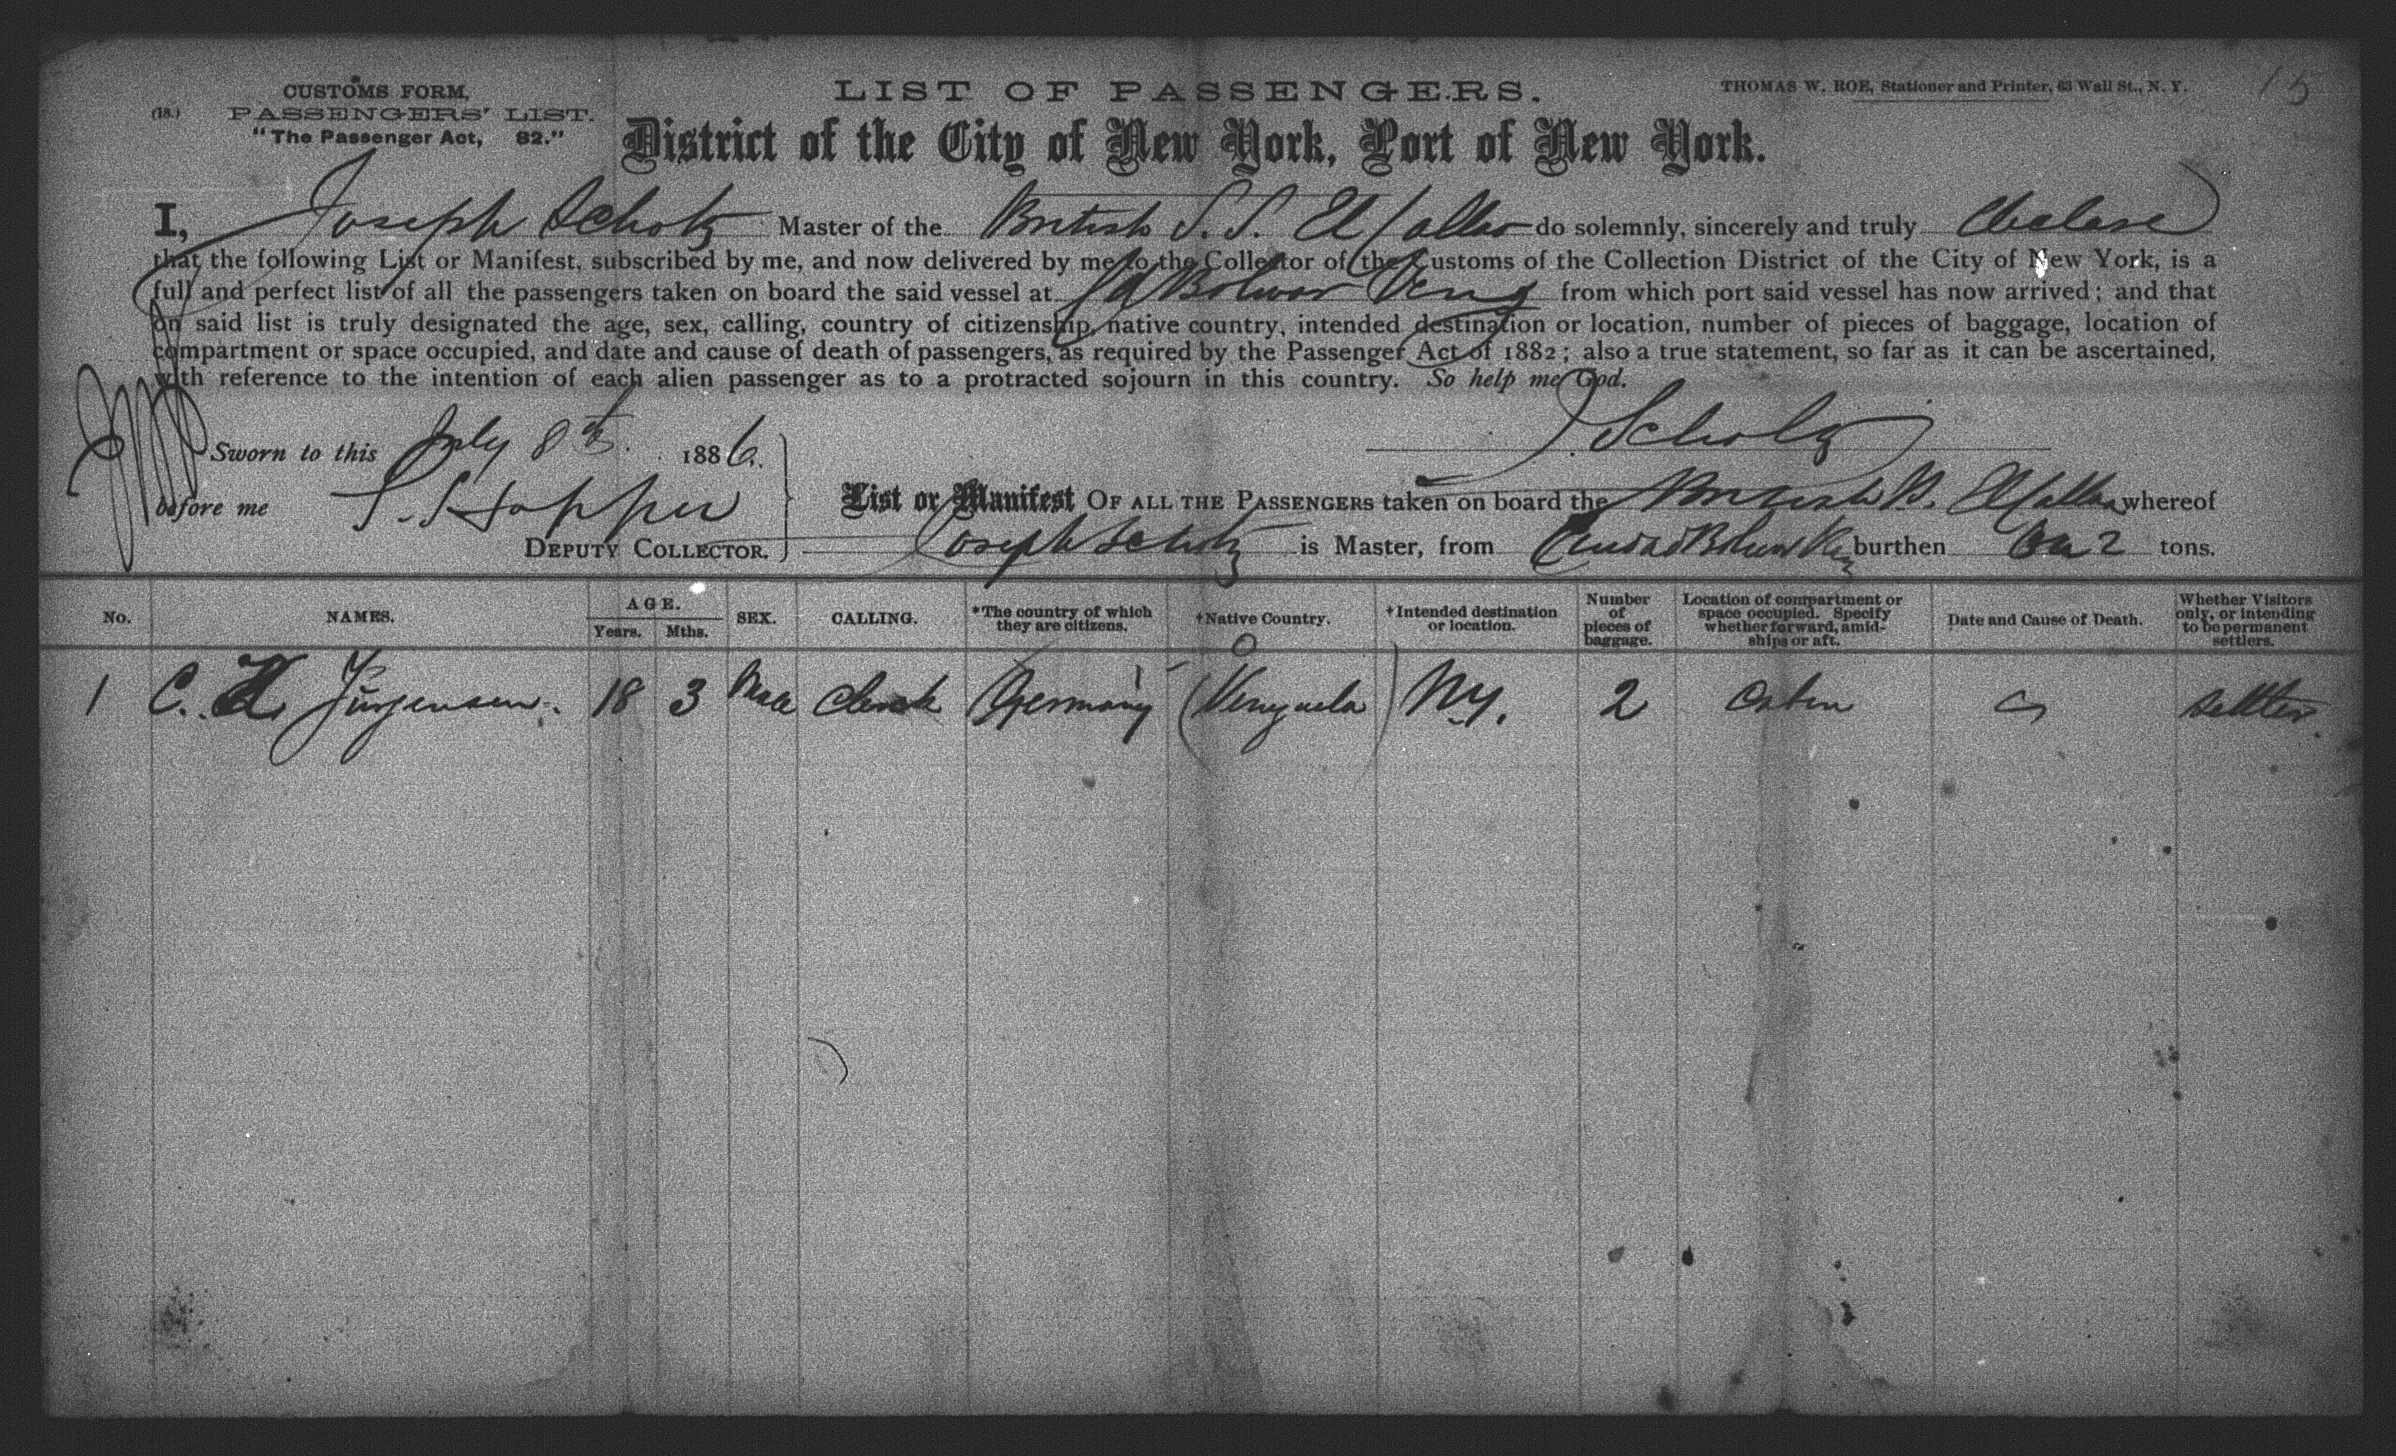 15
CUSTOMS FORM,
(18.) PASSENGERS' LIST.
"The Passenger Act, 82."
LIST OF PASSENGERS.
THOMAS W. ROE, Stationer and Printer, 63 Wall St., N. Y.
District of the City of New York, Port of New York.
I, Joseph Scholz Master of the British S.S. El Callao do solemnly, sincerely and truly
that the following List or Manifest, subscribed by me, and now delivered by me to the Collector of the Customs of the Collection District of the City of New York, is a
full and perfect list of all the passengers taken on board the said vessel at Bolivar from which port said vessel has now arrived; and that
on said list is truly designated the age, sex, calling, country of citizenship, native country, intended destination or location, number of pieces of baggage, location of
compartment or space occupied, and date and cause of death of passengers, as required by the Passenger Act of 1882; also a true statement, so far as it can be ascertained,
with reference to the intention of each alien passenger as to a protracted sojourn in this country. So help me God.
J. Scholz
Sworn to this July 8th 1886.
before me S. Hopper
DEPUTY COLLECTOR.
List or Manifest OF ALL THE PASSENGERS taken on board the British S. El Callao whereof
Joseph Scholz is Master, from Ciudad Bolivar burthen tons.
No. NAMES. AGE. Years. Mths. SEX. CALLING. *The country of which they are citizens. †Native Country. †Intended destination or location. Number of pieces of baggage. Location of compartment or space occupied. Specify whether forward, amidships or aft. Date and Cause of Death. Whether Visitors only, or intending to be permanent settlers.
1 C. H. Jürgensen. 18 3 Male Clerk Germany (Venzuela) NY. 2 Cabin settler